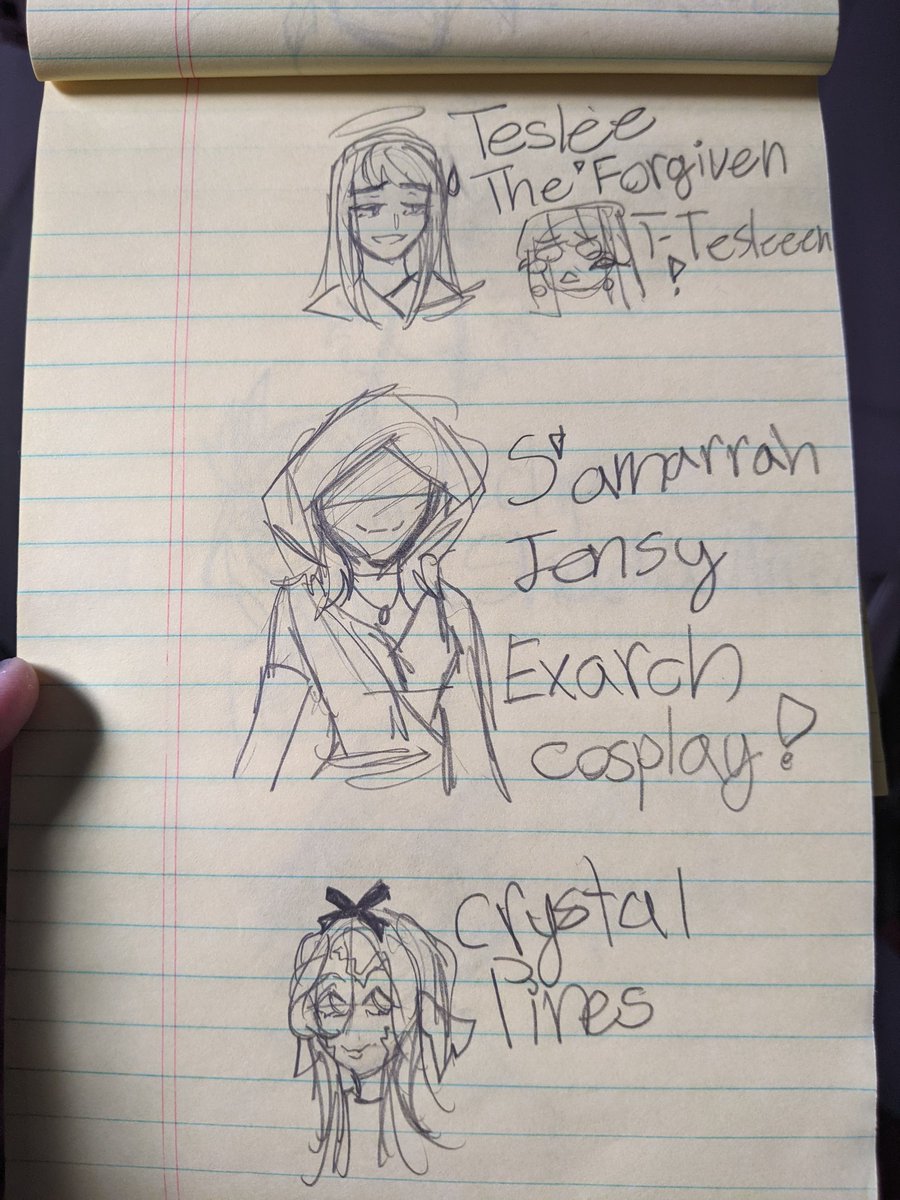 Teslee
The Forgiven
T-Tesleeen!
Samarrah
Jonsy
Exarch
cosplay!
crystal
Pines